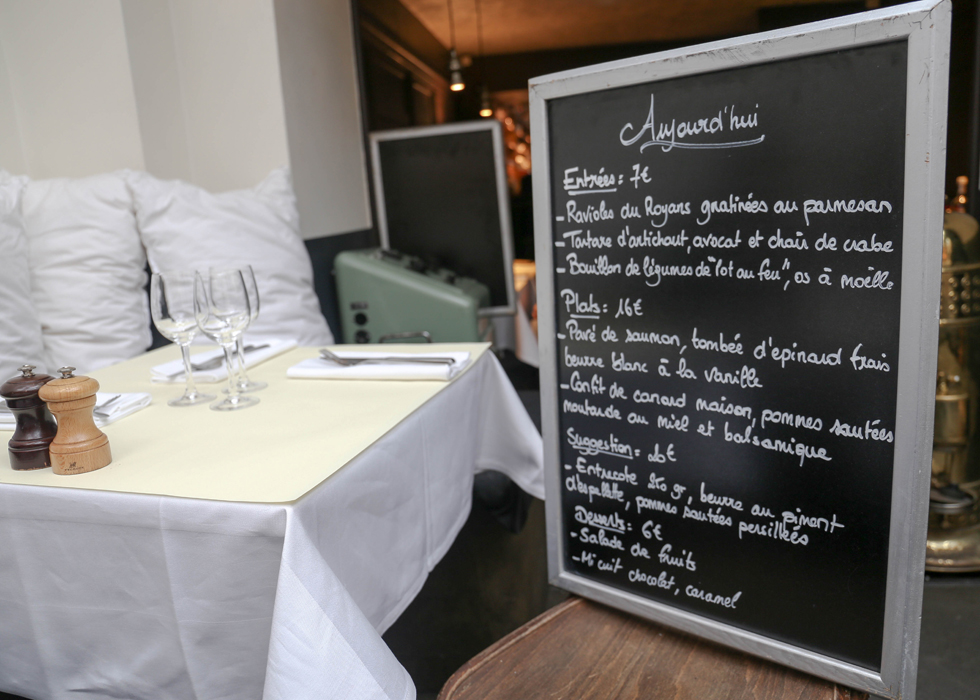 Aujourd'hui
Entrées : 7€
- Ravioles du Royans gratinées au parmesan
- Tartare d'artichaut, avocat et chair de crabe
- Bouillon de légumes de "Pot au feu", os à moëlle
Plats : 16€
- Pavé de saumon, tombée d'épinard frais
beurre blanc à la vanille
- Confit de canard maison, pommes sautées
moutarde au miel et balsamique
Suggestion : 20€
- Entrecote 250 gr, beurre au piment
d'espelette, pommes sautées persillées
Desserts : 6€
- Salade de fruits
- Mi cuit chocolat, caramel